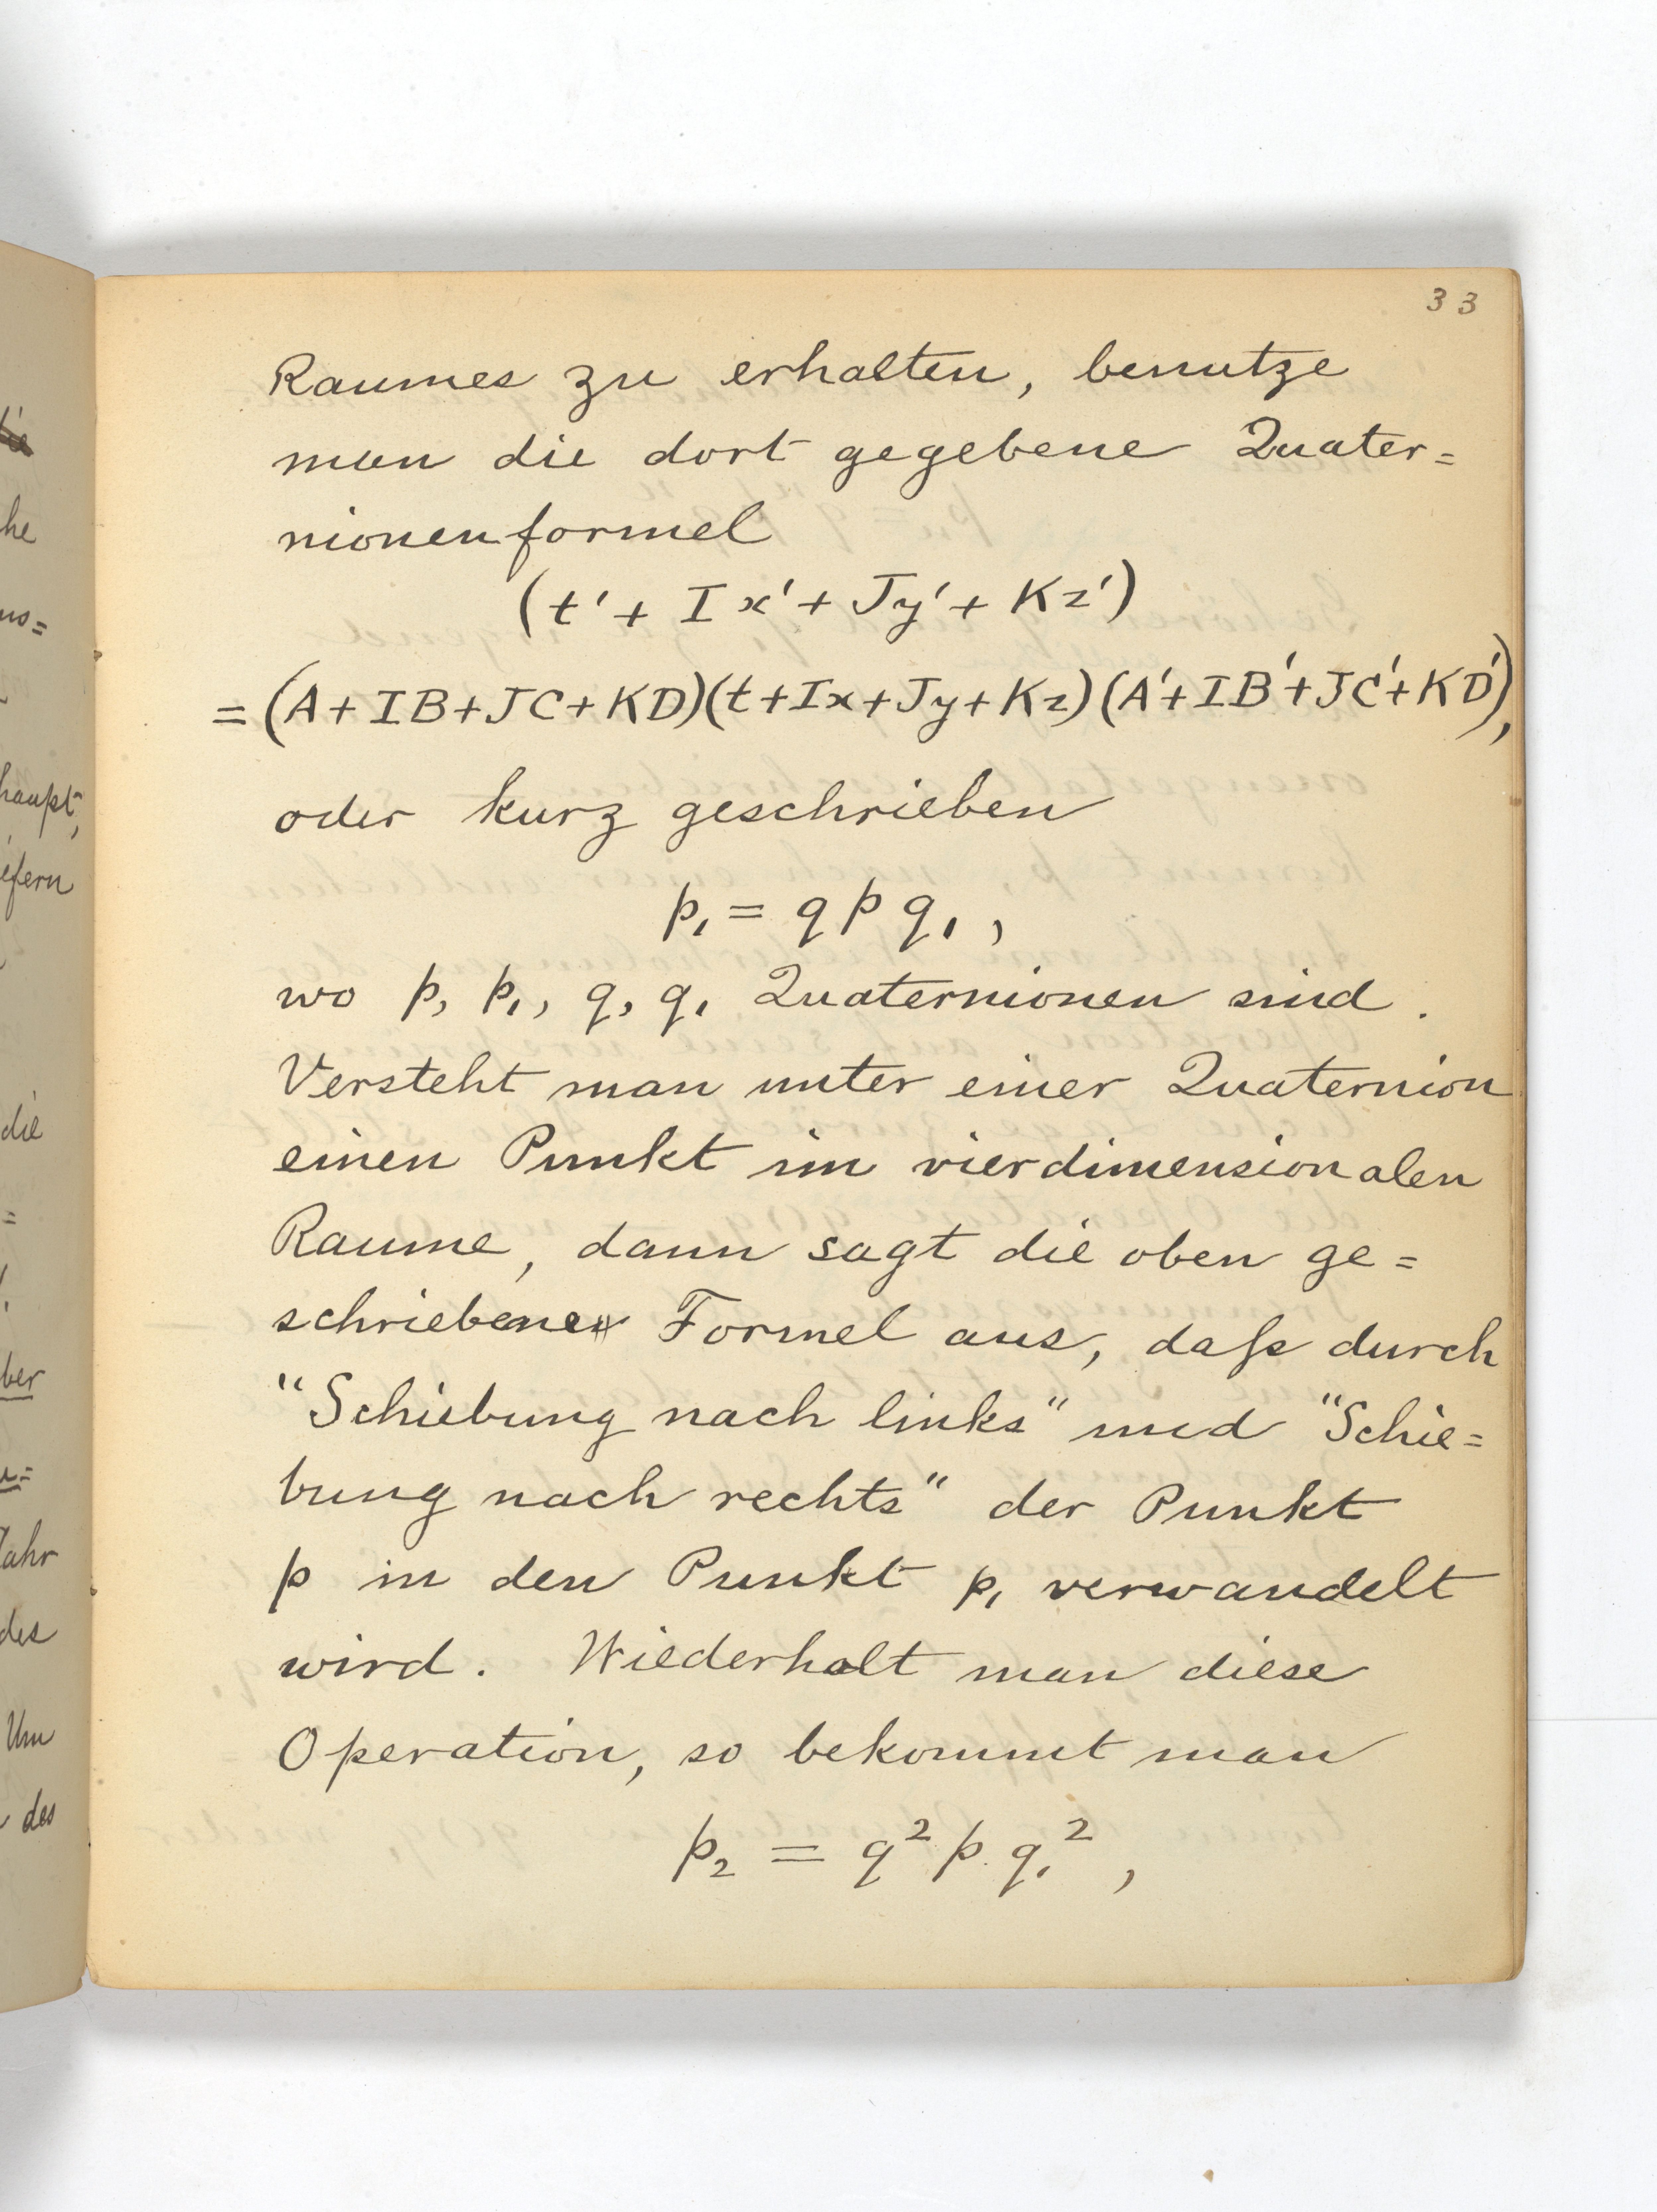 33
Raumes zu erhalten, benutze
man die dort gegebene Quater=
nionenformel
(t' + I x' + Jy' + Kz')
= (A + IB + JC + KD)(t + Ix + Jy + Kz)(A' + IB' + JC' + KD'),
oder kurz geschrieben
p₁ = q p q₁,
wo p, p₁, q, q₁ Quaternionen sind.
Versteht man unter einer Quaternion
einen Punkt im vierdimensionalen
Raume, dann sagt die oben ge=
schriebene Formel aus, daß durch
"Schiebung nach links" und "Schie=
bung nach rechts" der Punkt
p in den Punkt p₁ verwandelt
wird. Wiederholt man diese
Operation, so bekommt man
p₂ = q² p q₁²,
he
haupt,
efern
die
ber
Jahr
des
Um
des